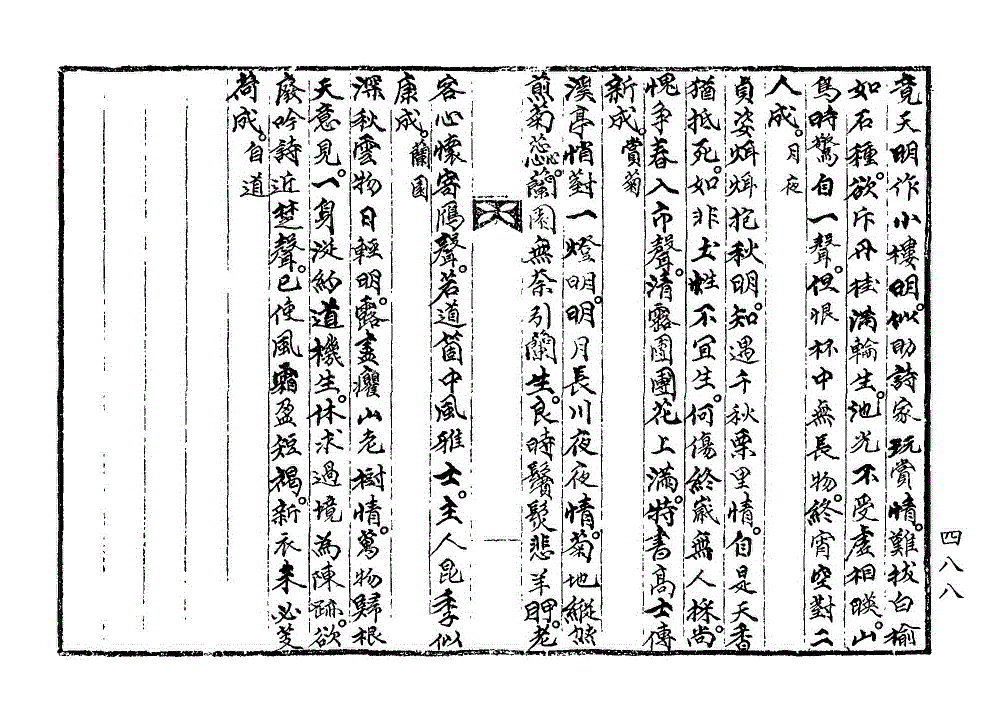 竟天明作小樓明。似助詩家玩賞情。難拔白榆
如石種。欲斥丹桂滿輪生。池光不受虛相映。山
鳥時驚自一聲。但恨杯中無長物。終宵空對二
人成。月夜
貞姿炯炯抱秋明。知遇千秋栗里情。自是天香
猶抵死。如非土性不宜生。何傷終歲無人採。尚
愧爭春入市聲。清露團團花上滿。特書高士傳
新成。賞菊
溪亭悄對一燈明。明月長川夜夜情。菊地縱然
煎菊蕊。蘭園無奈引蘭生。良時鬢髮悲羊胛。老
客心懷寄鴈聲。若道箇中風雅士。主人昆季似
康成。蘭園
深秋雲物日輕明。露盡癯山老樹情。萬物歸根
天意見。一身淡約道機生。休求過境為陳跡。欲
廢吟詩近楚聲。已使風霜盈短褐。新衣未必芰
荷成。自道
四八八